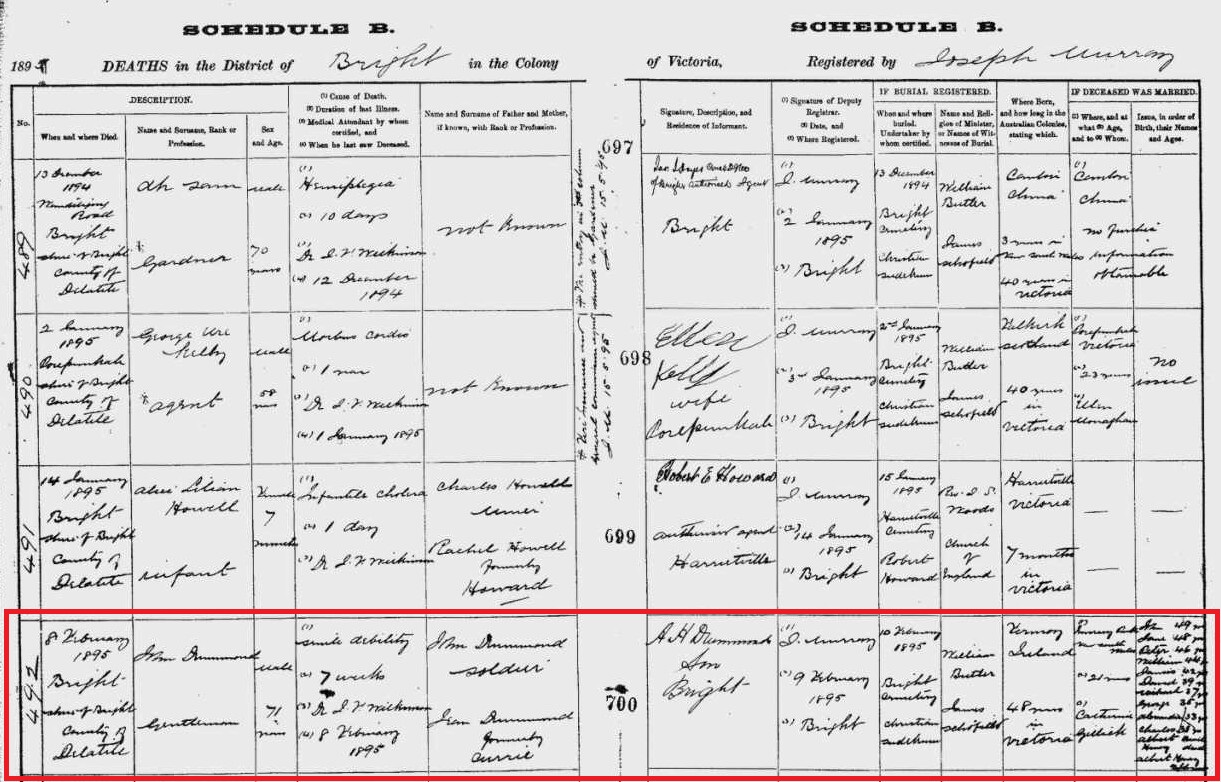 SCHEDULE B.
SCHEDULE B.
1895
DEATHS in the District of Bright in the Colony
of Victoria,
Registered by Joseph Murray
No.
DESCRIPTION.
When and where Died.
Name and Surname, Rank or Profession.
Sex and Age.
(1) Cause of Death.
(2) Duration of last Illness.
(3) Medical Attendant by whom certified, and
(4) When he last saw Deceased.
Name and Surname of Father and Mother, if known, with Rank or Profession.
Signature, Description, and Residence of Informant.
(1) Signature of Deputy Registrar.
(2) Date, and
(3) Where Registered.
IF BURIAL REGISTERED.
When and where buried. Undertaker by whom certified.
Name and Religion of Minister, or Names of Witnesses of Burial.
Where Born, and how long in the Australian Colonies, stating which.
IF DECEASED WAS MARRIED.
(1) Where, and at what (2) Age, and to (3) Whom.
Issue, in order of Birth, their Names and Ages.
489
13 December
1894
Road
Bright
Shire of Bright
County of
Delatite
Ah Sam
Gardner
male
70
years
(1)
Hemiplegia
(2) 10 days
(3)
(4) 12 December
1894
not known
697
of Bright Authorised Agent
Bright
(1)
J. Murray
(2) 2 January
1895
(3) Bright
13 December
1894
Bright
Cemetery
Christian
William
Butler
James
Schofield
Canton
China
New South Wales
40 years in
Victoria
(1)
Canton
China
no further
information
obtainable
490
2 January
1895
Porepunkah
Shire of Bright
County of
Delatite
George
agent
male
58
years
(1)
Morbus Cordis
(2) 1 year
(3)
(4) 1 January 1895
not known
698
Ellen
Kelly
wife
Porepunkah
(1)
J. Murray
(2) 3rd January
1895
(3) Bright
2nd January
1895
Bright
Cemetery
Christian
William
Butler
James
Schofield
Scotland
40 years
in
Victoria
(1)
Porepunkah
Victoria
(2) 23 years
(3)
Ellen
Monaghan
No
issue
491
14 January
1895
Bright
Shire of Bright
County of
Delatite
Alice Lilian
Howell
infant
Female
7
months
(1)
Infantile cholera
(2) 1 day
(3)
Charles Howell
miner
Rachel Howell
formerly
Howard
699
Robert E Howard
authorised agent
Harrietville
(1)
J. Murray
(2) 14 January
1895
(3) Bright
15 January
1895
Harrietville
Cemetery
Robert
Howard
Rev. J. S.
Woods
Church
of
England
Harrietville
Victoria
7 months
in
Victoria
492
8 February
1895
Bright
Shire of Bright
County of
Delatite
John Drummond
Gentleman
male
71
years
(1)
Senile debility
(2) 7 weeks
(3)
(4) 8 February
1895
John Drummond
soldier
Jean Drummond
formerly
Currie
700
A H Drummond
Son
Bright
(1)
J. Murray
(2) 9 February
1895
(3) Bright
10 February
1895
Bright
Cemetery
Christian
William
Butler
James
Schofield
Ireland
48 years
in
Victoria
(2) 21 years
(3)
Catherine
John 49
Jane 48
Peter 46
William 44
James 42
David 39
Michael 37
George 35
Alexander 33
Charles
Albert
Henry dead
Albert Henry